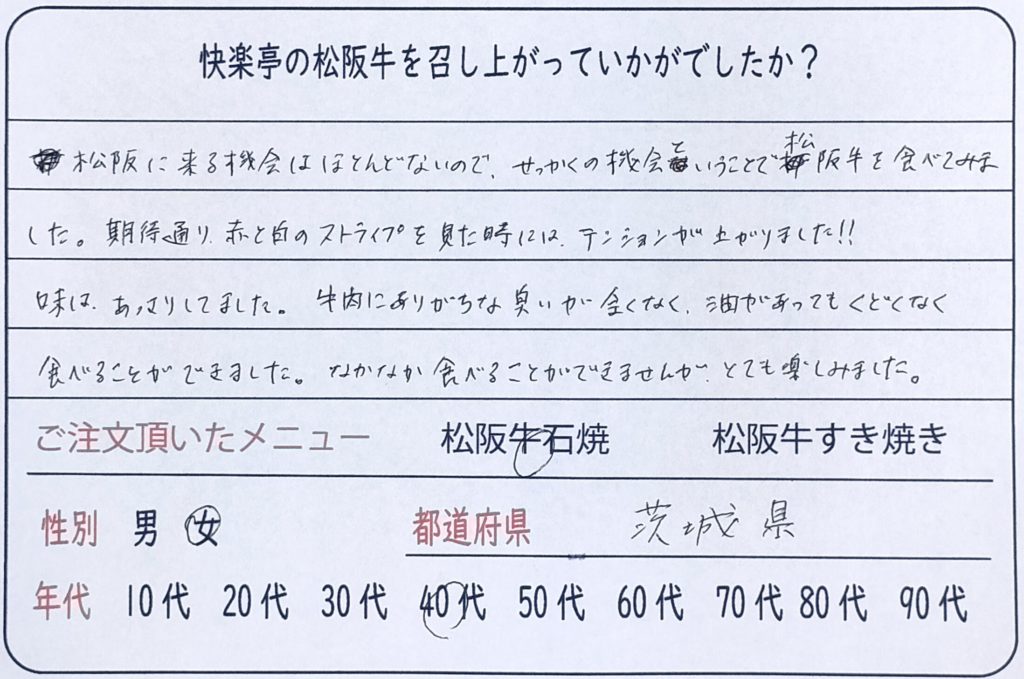 快楽亭の松阪牛を召し上がっていかがでしたか？
松阪に来る機会はほとんどないので、せっかくの機会ということで松阪牛を食べてみま
した。期待通り、赤と白のストライプを見た時には、テンションが上がりました!!
味は、あっさりしてました。牛肉にありがちな臭いが全くなく、油があってもくどくなく
食べることができました。なかなか食べることができませんが、とても楽しみました。
ご注文頂いたメニュー 松阪牛石焼 松阪牛すき焼き
性別 男 女 都道府県 茨城県
年代 10代 20代 30代 40代 50代 60代 70代 80代 90代